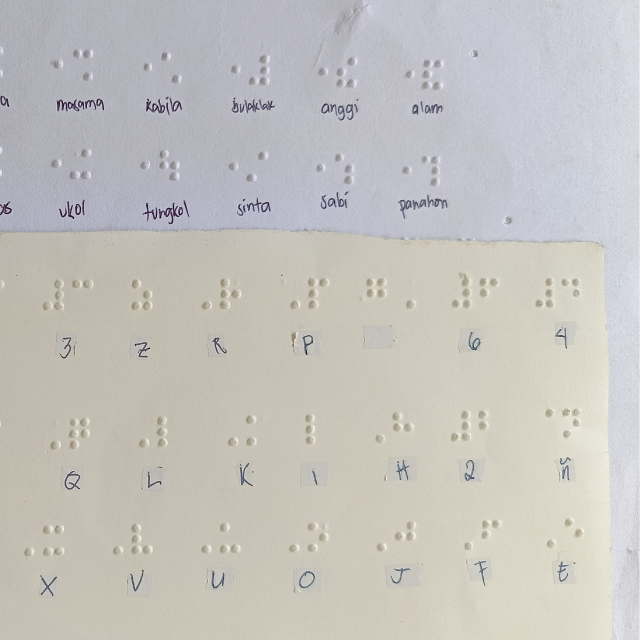 a masama kabila bulaklak anggi alam
os ukol tungkol sinta sabi panahon
3 Z R P 6 4
Q L K 1 H 2 ñ
X V U O J F E